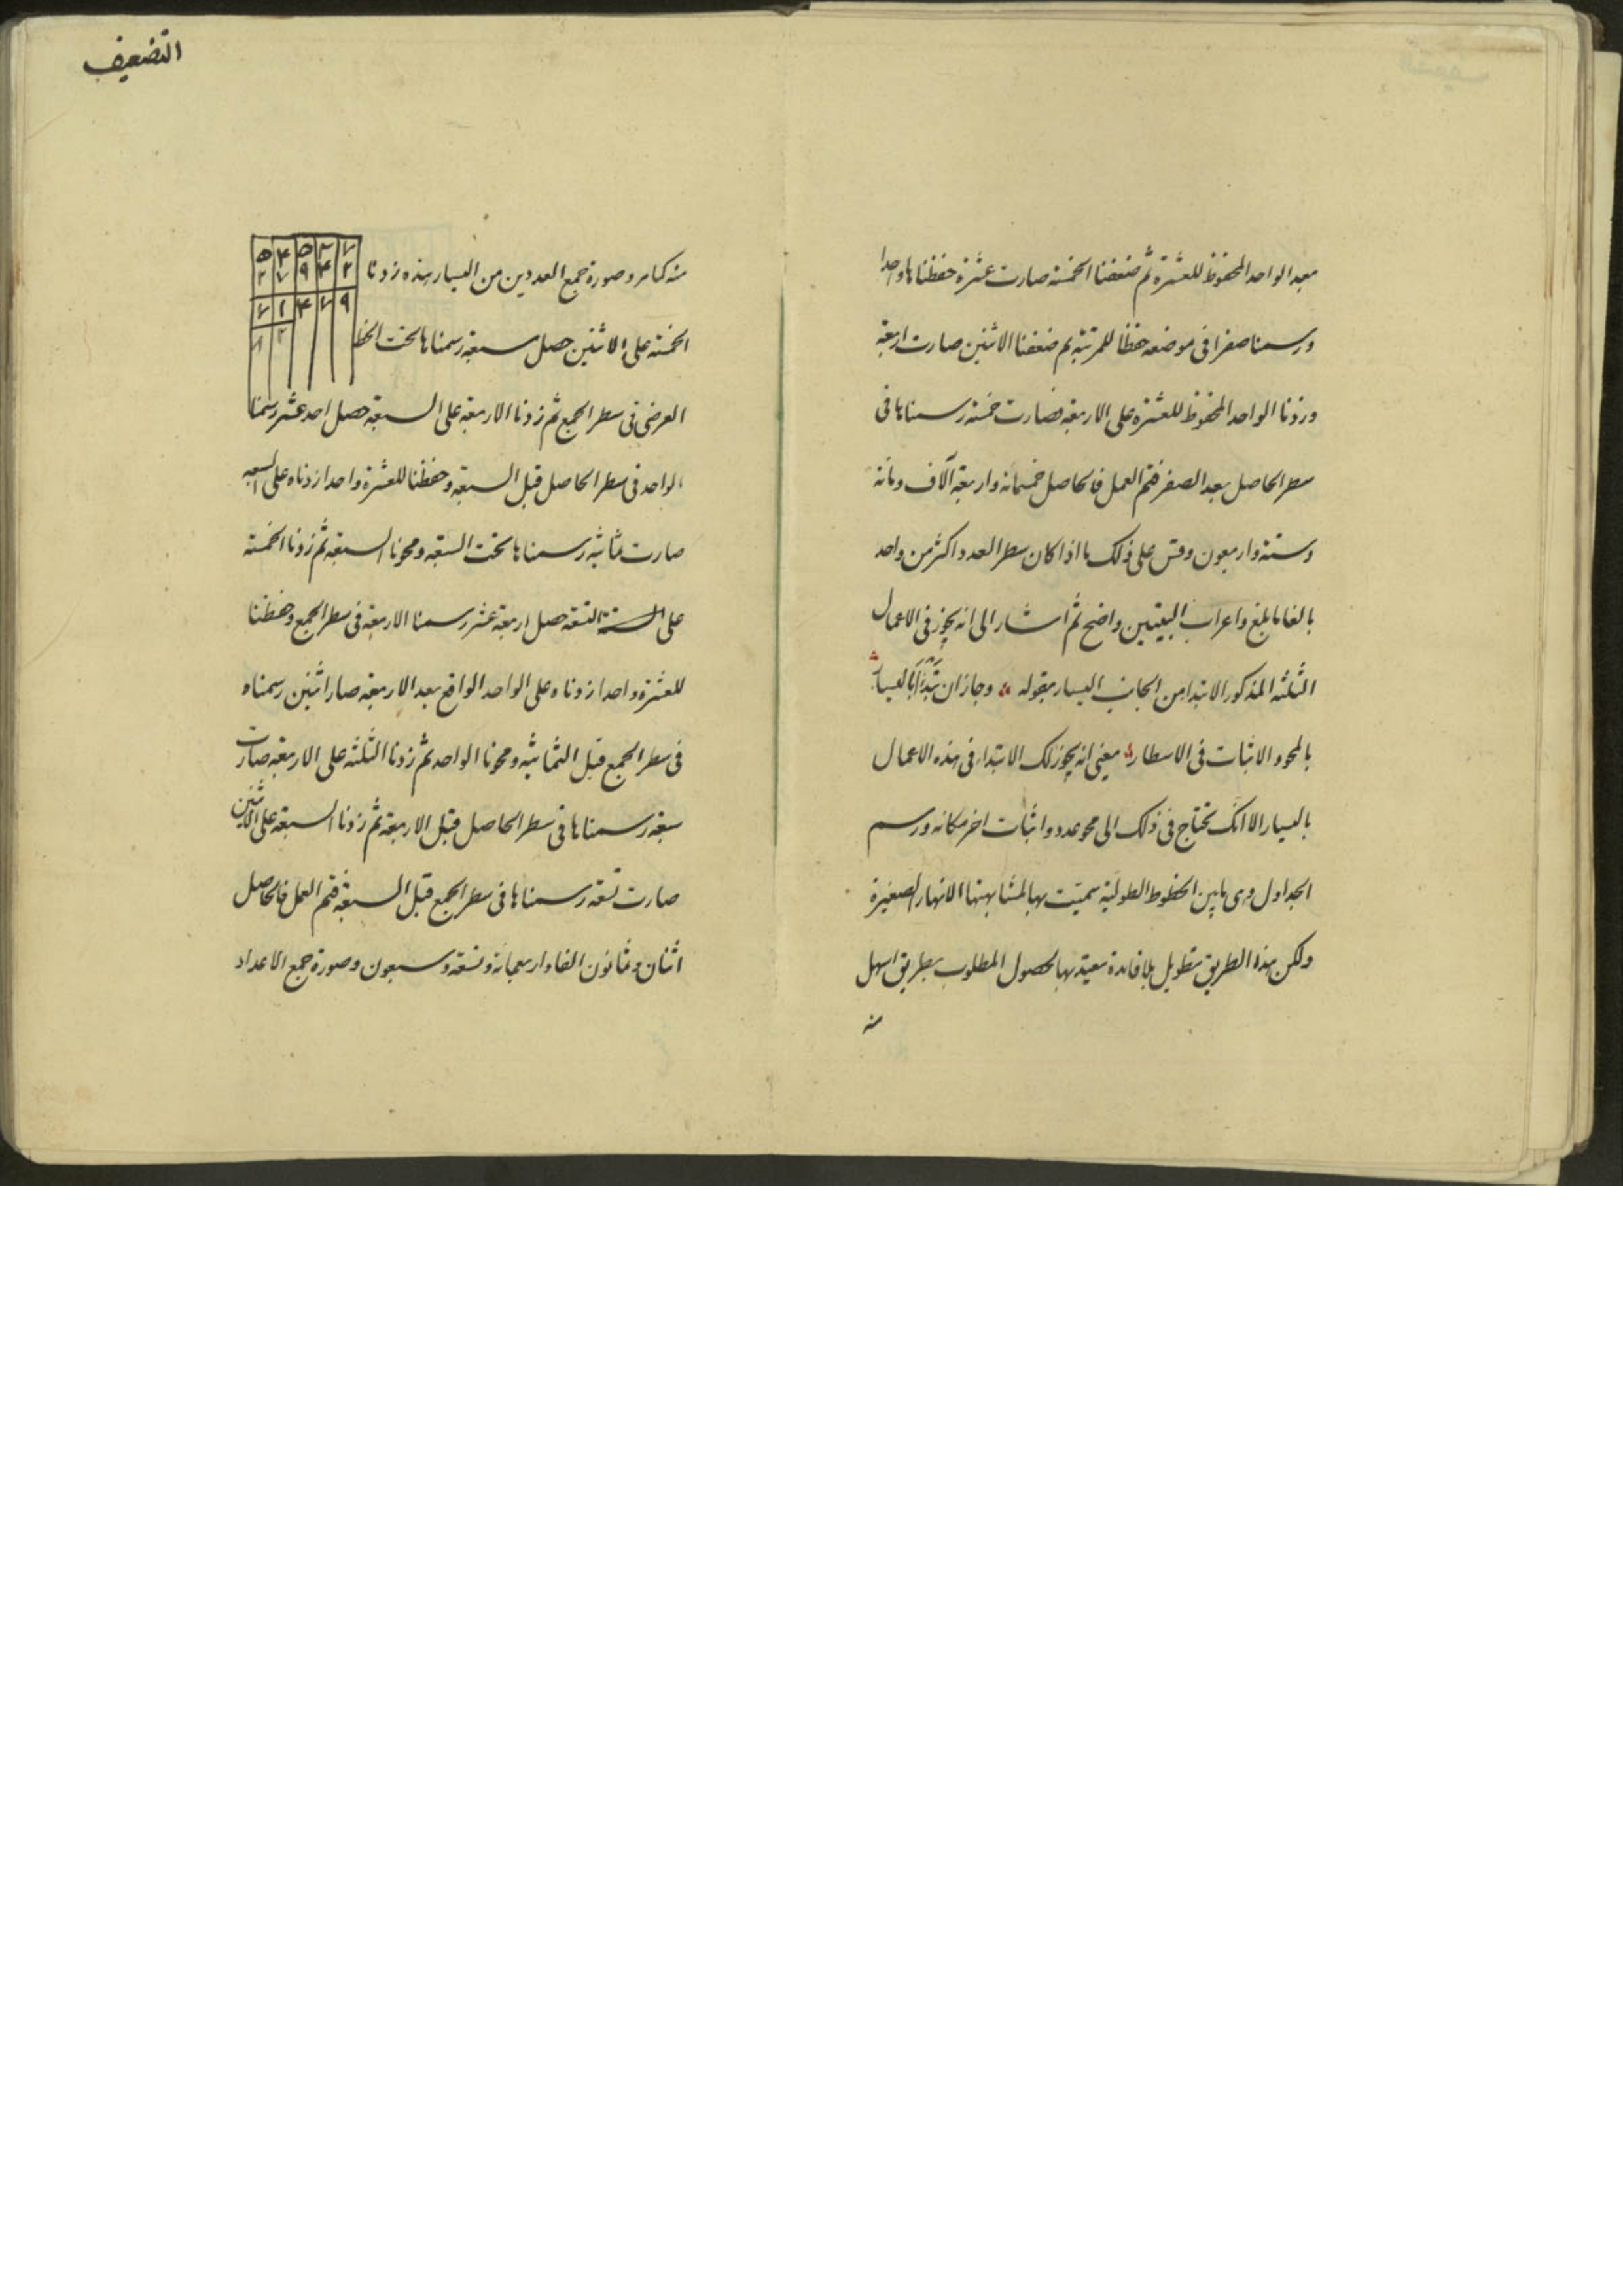 بعد الواحد المحفوظ للعشرة ثم ضعفنا الخمسة صارت عشرة حفظناها واحدا
ورسمنا صفرا فى موضعه حفظا للمرتبة ثم ضعفنا الاثنين صارت اربعة
وزدنا الواحد المحفوظ للعشرة على الاربعة فصارت خمسة رسمناها فى
سطر الحاصل بعد الصفر فتم العمل فالحاصل خمسمائة واربعة آلاف ومائة
وستة واربعون وقس على ذلك ما اذا كان سطر العدد اكثر من واحد
بالغا ما بلغ واعراب البيتين واضح ثم اشار الى انه يجوز فى الاعمال
الثلثة المذكور الابتدا من الجانب اليسار بقوله وجاز ان تبدأ باليسار
بالمحو والاثبات فى الاسطار يعنى انه يجوز لك الابتداء فى هذه الاعمال
باليسار الا انك تحتاج فى ذلك الى محو عدد واثبات اخر مكانه ورسم
الجداول وهى ما بين الخطوط الطولية سميت بها لمشابهتها الانهار الصغيرة
ولكن هذا الطريق تطويل بلا فائدة معتد بها لحصول المطلوب بطريق اسهل
منه
التضعيف
منه كما مر وصورة جمع العددين من اليسار هذه زدنا
الخمسة على الاثنين حصل سبعة رسمناها تحت الخط
العرضى فى سطر الجمع ثم زدنا الاربعة على السبعة حصل احد عشر رسمنا
الواحد فى سطر الحاصل قبل السبعة وحفظنا للعشرة واحدا زدناه على السبعة
صارت ثمانية رسمناها تحت السبعة ومحونا السبعة ثم زدنا الخمسة
على التسعة حصل اربعة عشر رسمنا الاربعة فى سطر الجمع وحفظنا
للعشرة واحدا زدناه على الواحد الواقع بعد الاربعة صار اثنين رسمناه
فى سطر الجمع قبل الثمانية ومحونا الواحد ثم زدنا الثلثة على الاربعة صارت
سبعة رسمناها فى سطر الحاصل قبل الاربعة ثم زدنا السبعة على الاثنين
صارت تسعة رسمناها فى سطر الجمع قبل السبعة فتم العمل فالحاصل
اثنان وثمانون الفا واربعمائة وتسعة وسبعون وصورة جمع الاعداد